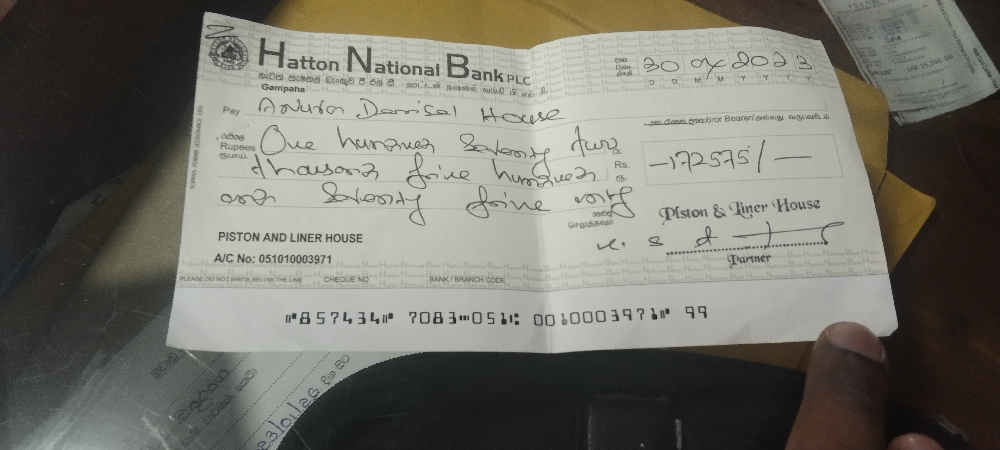 Hatton National Bank PLC
හැටන් නැෂනල් බෑංකුව පී එල් සී
Gampaha
Date 30 2023
D D M M Y Y Y Y
Pay Anura House
or Bearer
Rupees One hundred Seventy two
thousand five hundred
and Seventy five only
Rs. -172575/-
Piston & Liner House
Partner
PISTON AND LINER HOUSE
A/C No: 051010003971
PLEASE DO NOT WRITE BELOW THE LINE CHEQUE NO BANK / BRANCH CODE
⑈857434⑈ 7083⑉051⑆ 0010003971⑈ 99
23/01/26